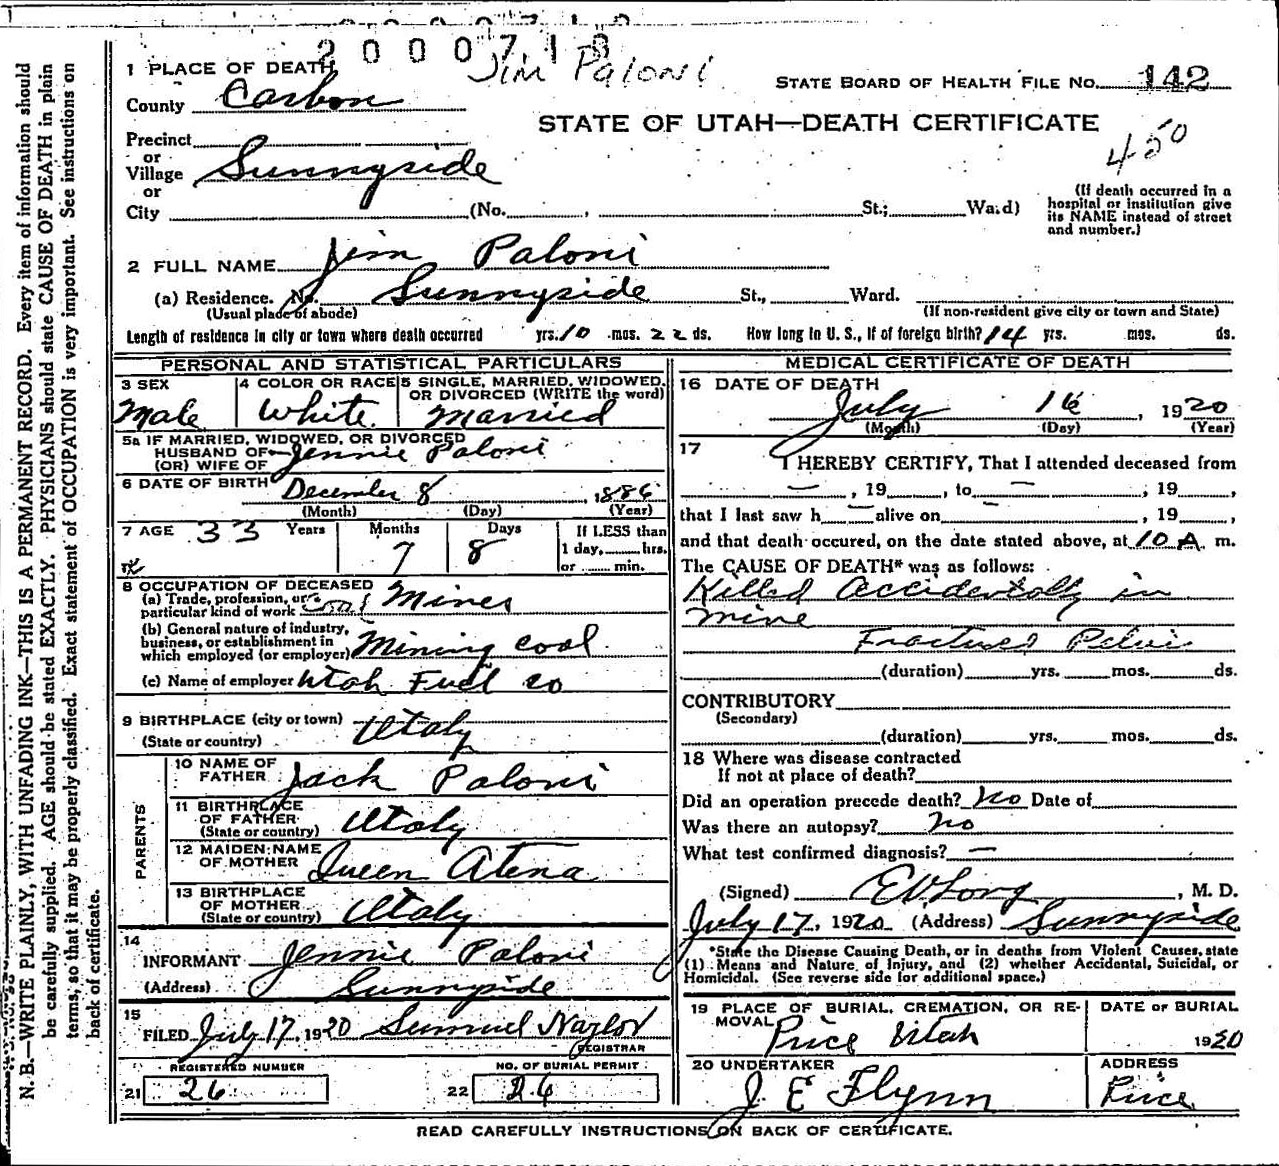 2000713
Jim Paloni
1 PLACE OF DEATH
STATE BOARD OF HEALTH FILE NO. 142
County Carbon
STATE OF UTAH—DEATH CERTIFICATE
450
Precinct
or
Village Sunnyside
or
City (No. , St.; Ward)
(If death occurred in a
hospital or institution give
its NAME instead of street
and number.)
2 FULL NAME Jim Paloni
(a) Residence. No. Sunnyside St., Ward.
(Usual place of abode) (If non-resident give city or town and State)
Length of residence in city or town where death occurred yrs. 10 mos. 22 ds. How long in U. S., if of foreign birth? 14 yrs. mos. ds.
PERSONAL AND STATISTICAL PARTICULARS
3 SEX Male
4 COLOR OR RACE White
5 SINGLE, MARRIED, WIDOWED,
OR DIVORCED (WRITE the word)
Married
5a IF MARRIED, WIDOWED, OR DIVORCED
HUSBAND OF Jennie Paloni
(OR) WIFE OF
6 DATE OF BIRTH December 8, 1886
(Month) (Day) (Year)
7 AGE 33 Years Months 7 Days 8
If LESS than
1 day, hrs.
or min.
8 OCCUPATION OF DECEASED
(a) Trade, profession, or
particular kind of work Coal Miner
(b) General nature of industry,
business, or establishment in
which employed (or employer) Mining coal
(c) Name of employer Utah Fuel Co
9 BIRTHPLACE (city or town)
(State or country) Italy
PARENTS
10 NAME OF
FATHER Jack Paloni
11 BIRTHPLACE
OF FATHER
(State or country) Italy
12 MAIDEN NAME
OF MOTHER Queen Atena
13 BIRTHPLACE
OF MOTHER
(State or country) Italy
14
INFORMANT Jennie Paloni
(Address) Sunnyside
15
FILED July 17, 1920 Samuel Naylor
REGISTRAR
REGISTERED NUMBER
21 26
NO. OF BURIAL PERMIT
22 26
MEDICAL CERTIFICATE OF DEATH
16 DATE OF DEATH
July 16, 1920
(Month) (Day) (Year)
17
I HEREBY CERTIFY, That I attended deceased from
— , 19 , to — , 19 ,
that I last saw h — alive on — , 19 ,
and that death occured, on the date stated above, at 10 A m.
The CAUSE OF DEATH* was as follows:
Killed accidentally in
mine
Fractured Pelvis
(duration) yrs. mos. ds.
CONTRIBUTORY
(Secondary)
(duration) yrs. mos. ds.
18 Where was disease contracted
If not at place of death?
Did an operation precede death? No Date of
Was there an autopsy? no
What test confirmed diagnosis? —
(Signed) E V Long, M. D.
July 17, 1920 (Address) Sunnyside
*State the Disease Causing Death, or in deaths from Violent Causes, state
(1) Means and Nature of Injury, and (2) whether Accidental, Suicidal, or
Homicidal. (See reverse side for additional space.)
19 PLACE OF BURIAL, CREMATION, OR RE-
MOVAL Price Utah
DATE OF BURIAL
1920
20 UNDERTAKER
J. E Flynn
ADDRESS
Price
READ CAREFULLY INSTRUCTIONS ON BACK OF CERTIFICATE.
N. B.—WRITE PLAINLY, WITH UNFADING INK—THIS IS A PERMANENT RECORD. Every item of information should
be carefully supplied. AGE should be stated EXACTLY. PHYSICIANS should state CAUSE OF DEATH in plain
terms, so that it may be properly classified. Exact statement of OCCUPATION is very important. See instructions on
back of certificate.